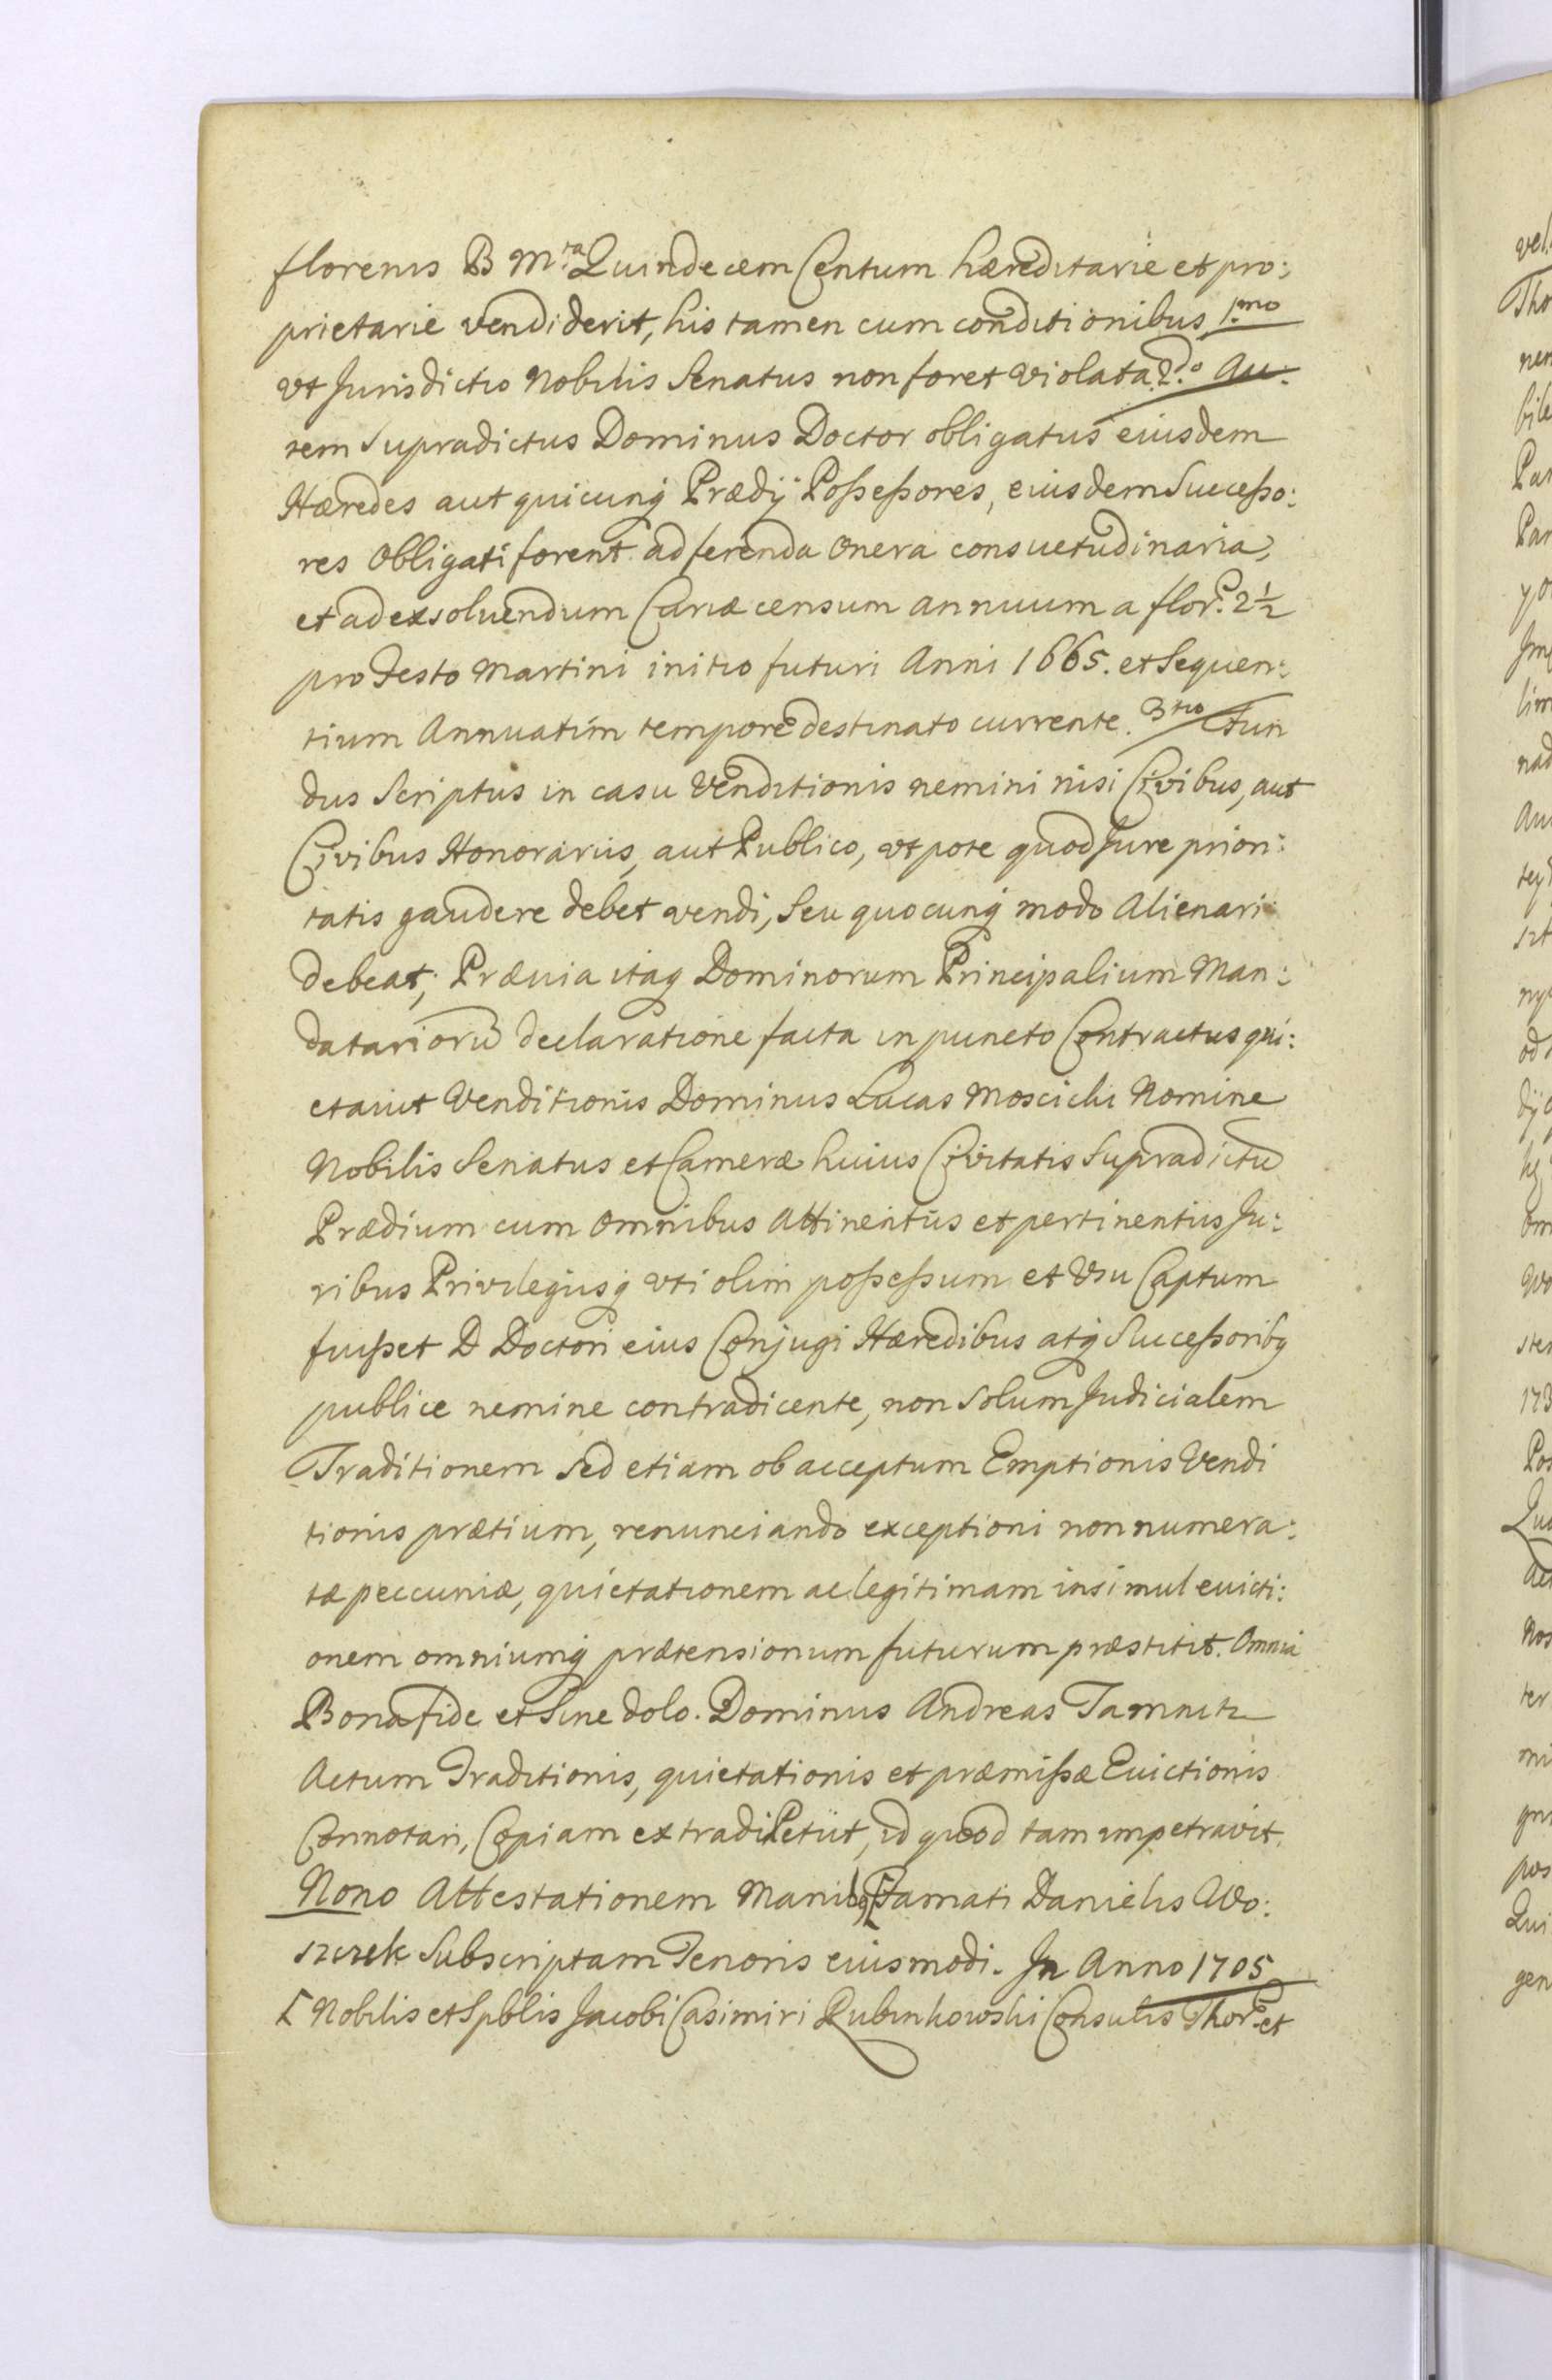 florenis B Mta Quindecem Centum hæreditarie et pro:
prietarie vendiderit, his tamen cum conditionibus 1mo
vt Jurisdictio Nobilis Senatus non foret violata. 2do Au:
tem Supradictus Dominus Doctor obligatus eiusdem
Hæredes aut quicunq Prædij Possessores, eiusdem Successo:
res obligati forent ad ferenda onera consuetudinaria,
et ad exsoluendum Curiæ censum annuum a flor: P. 2½
pro Festo Martini initio futuri Anni 1665. et Sequen:
tium Annuatim tempore destinato currente. 3tio Fun
dus Scriptus in casu Venditionis nemini nisi Civibus, aut
Civibus Honorariis, aut Publico, vt pote quod Jure priori:
tatis gaudere debet vendi, Seu quocunq modo Alienari
debeat; Præuia itaq Dominorum Principalium Man:
datariorū declaratione facta in puncto Contractus qui:
etavit Venditionis Dominus Lucas Moscicki Nomine
Nobilis Senatus et Cameræ huius Civitatis Supradictū
Prædium cum omnibus Attinentiis et pertinentiis Ju:
ribus Privilegiisq vti olim possessum et Usu Captum
fuisset D Doctori eius Conjugi Hæredibus atq Successoribq
publice nemine contradicente, non Solum Judicialem
Traditionem Sed etiam ob acceptum Emptionis Vendi
tionis prætium, renunciando exceptioni non numera:
tæ peccuniæ, quietationem ac legitimam insimul evicti:
onem omniumq prætensionum futurum præstitit. Omnia
Bona fide et Sine dolo. Dominus Andreas Tamnitz
Actum Traditionis, quietationis et præmissæ Evictionis
Connotari, Copiam extradi Petiit, id quod tam impetravit.
Nono Attestationem Manibq [Famati Danielis Wo:
szczek Subscriptam Tenoris eiusmodi. In Anno 1705
[ Nobilis et Spblis Jacobi Casimiri Rubinkowski Consulis Thor: et